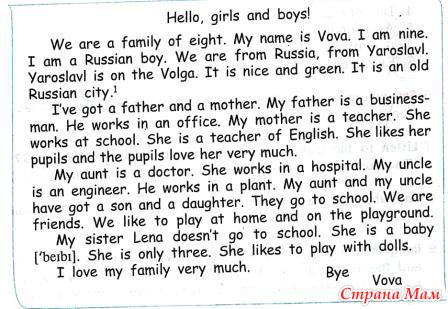 Hello, girls and boys!
We are a family of eight. My name is Vova. I am nine.
I am a Russian boy. We are from Russia, from Yaroslavl.
Yaroslavl is on the Volga. It is nice and green. It is an old
Russian city.¹
I've got a father and a mother. My father is a business-
man. He works in an office. My mother is a teacher. She
works at school. She is a teacher of English. She likes her
pupils and the pupils love her very much.
My aunt is a doctor. She works in a hospital. My uncle
is an engineer. He works in a plant. My aunt and my uncle
have got a son and a daughter. They go to school. We are
friends. We like to play at home and on the playground.
My sister Lena doesn't go to school. She is a baby
['beıbı]. She is only three. She likes to play with dolls.
I love my family very much.
Bye
Vova
Страна Мам